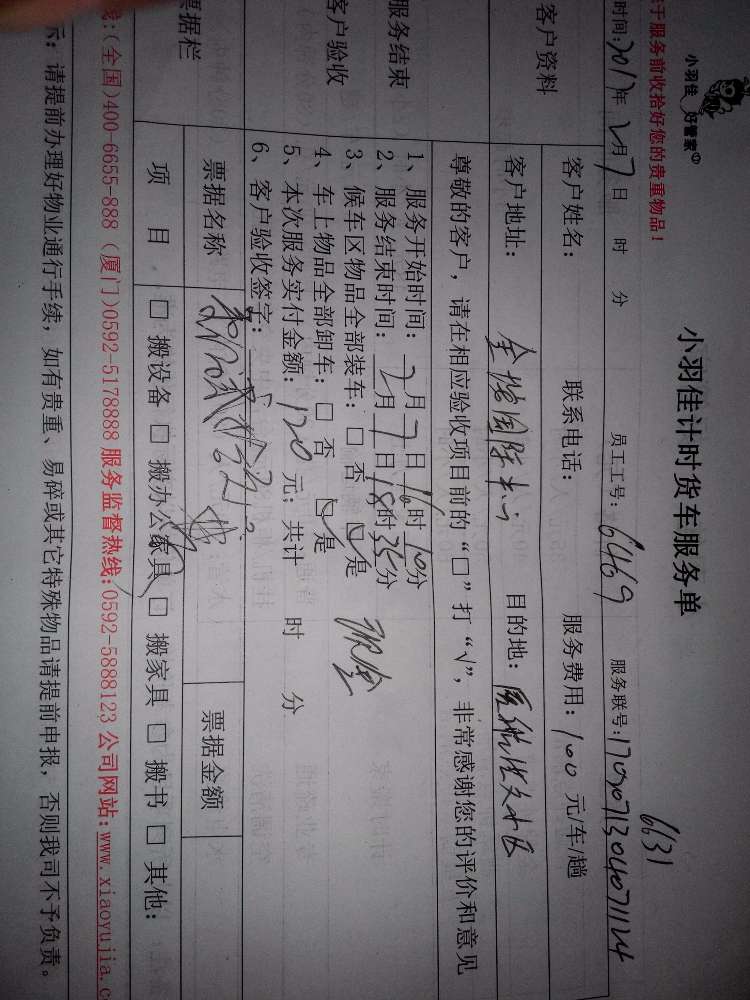 小羽佳 好管家
小羽佳计时货车服务单
6631
于服务前收拾好您的贵重物品！
时间:2017年2月7日 时 分 员工工号: 6469 服务联号:
客户资料
客户姓名: 联系电话: 服务费用: 100 元/车/趟
客户地址: 目的地:
服务结束
客户验收
尊敬的客户，请在相应验收项目前的“□”打“√”，非常感谢您的评价和意见
1、服务开始时间: 2月7日16时10分
2、服务结束时间: 2月7日18时35分
3、候车区物品全部装车: □ 否 ☑是 现金
4、车上物品全部卸车: □ 否 ☑是
5、本次服务实付金额: 120 元; 共计 时 分
6、客户验收签字:
票据栏
票据名称 票据金额
项 目 □ 搬设备 □ 搬办公家具 □ 搬家具 □ 搬书 □ 其他:
线:(全国)400-6655-888 (厦门)0592-5178888 服务监督热线:0592-5888123 公司网站:www.xiaoyujia.c
示: 请提前办理好物业通行手续，如有贵重、易碎或其它特殊物品请提前申报，否则我司不予负责。